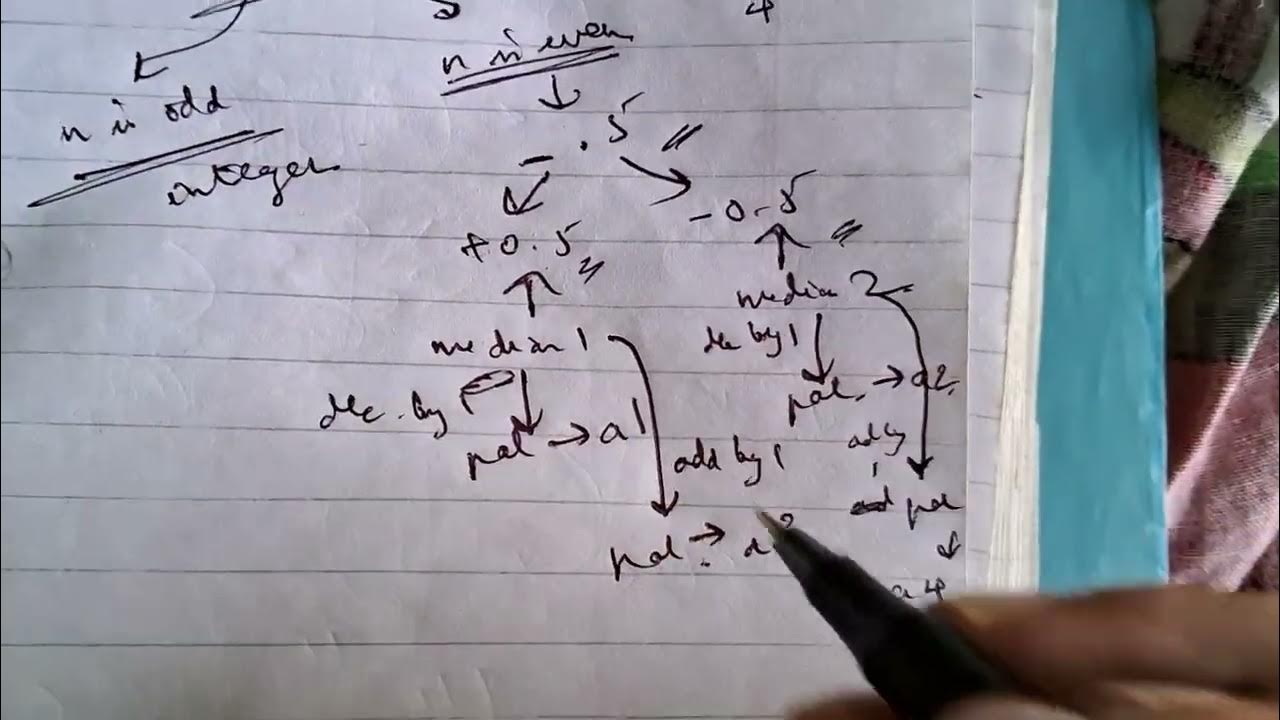 n is even
n is odd
integer
.5
+0.5
-0.5
median 1
median 2
dec by 1
pal → a2
dec. by
pal → a1
add by 1
ad by
1
pal
pal → a
a4